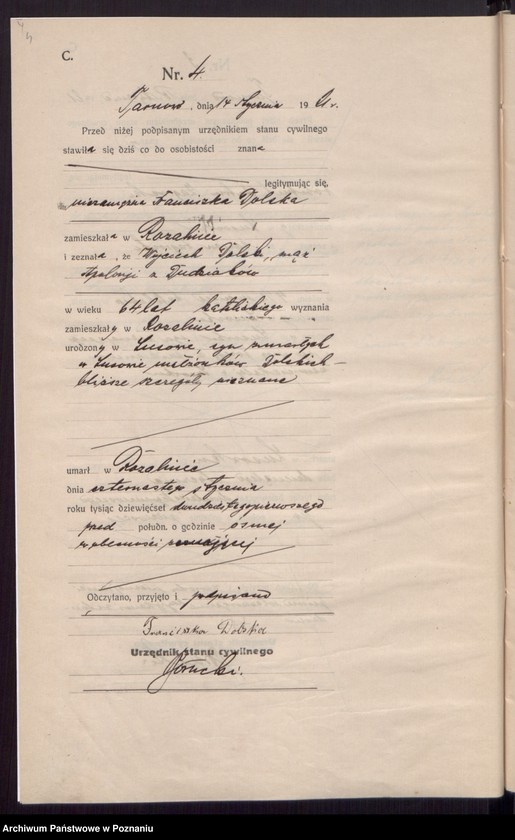 C.
Nr. 4.
Tarnowo, dnia 14 stycznia 1921 r.
Przed niżej podpisanym urzędnikiem stanu cywilnego
stawiła się dziś co do osobistości znana
legitymując się,
niezamężna Franciszka Dolska
zamieszkała w Rozalinie
i zeznała, że Wojciech Dolski, mąż
Apolonji z Dudziaków
w wieku 64 lat katolickiego wyznania
zamieszkały w Rozalinie
urodzony w Lusowie, syn zmarłych
w Lusowie małżonków Dolskich
bliższe szczegóły nieznane
umarł w Rozalinie
dnia czternastego stycznia
roku tysiąc dziewięćset dwudziestegopierwszego
przed połudn. o godzinie ósmej
w obecności zeznającej
Odczytano, przyjęto i podpisano
Franciszka Dolska
Urzędnik stanu cywilnego
Archiwum Państwowe w Poznaniu